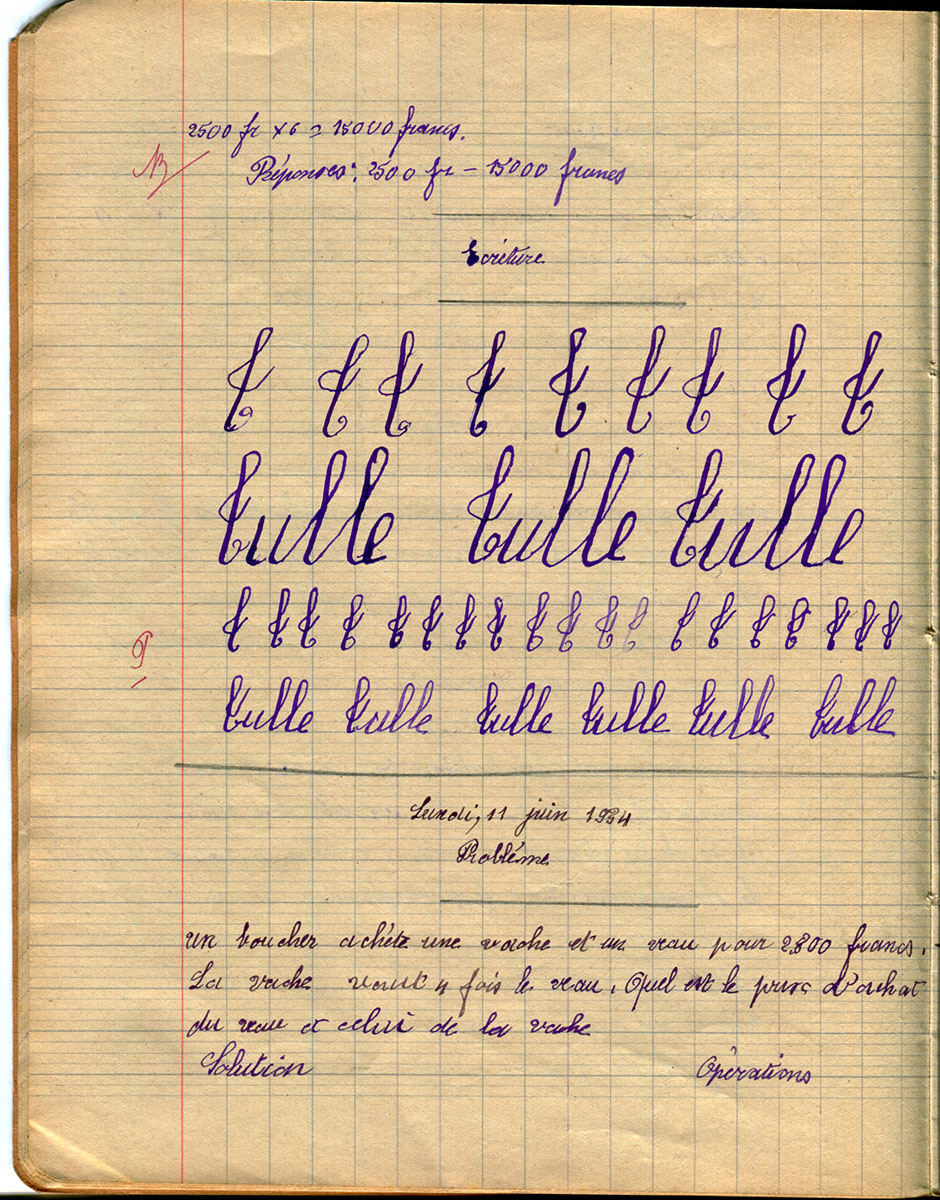 2500 fr x 6 = 15000 francs.
B
Réponses: 2500 fr – 15000 francs
Ecriture
t t t t t t t t t
tulle tulle tulle
t t t t t t t t t t t t t t t t t t t
tulle tulle tulle tulle tulle tulle
Lundi, 11 juin 1934
Problème
un boucher achéte une vache et un veau pour 2800 francs.
La vache vaut 4 fois le veau. Quel est le prix d'achat
du veau et celui de la vache
Solution Opérations